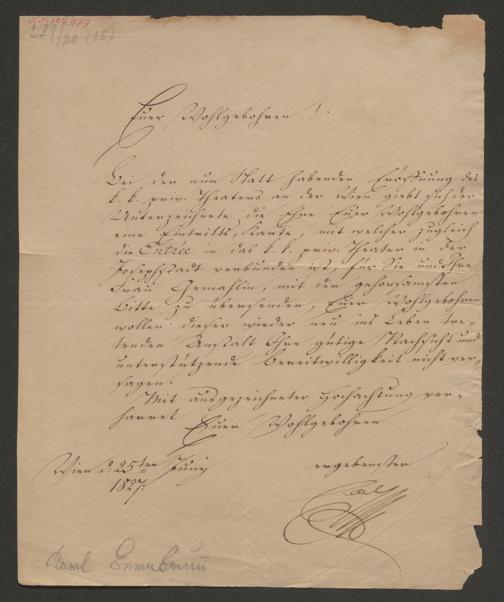 229/29 (15)
Euer Wohlgebohren!
Bei der nun Statt habenden Eröffnung des
k. k. priv. Theaters an der Wien giebt sich der
Unterzeichnete die Ehre Euer Wohlgebohren
eine Eintritts-Karte, mit welcher zugleich
die Entrée in das k. k. priv. Theater in der
Josephstadt verbunden ist, für Sie und Ihre
Frau Gemahlin, mit der gehorsamsten
Bitte zu übersenden, Euer Wohlgebohren
wollen dieser wieder neu ins Leben tre-
tenden Anstalt Ihre gütige Nachsicht und
unterstützende Bereitwilligkeit nicht ver-
sagen.
Mit ausgezeichneter Hochachtung ver-
harret
Euer Wohlgebohren
Wien d: 25ten Juny
1827.
ergebenster
Carl
Karl Bernbrunn